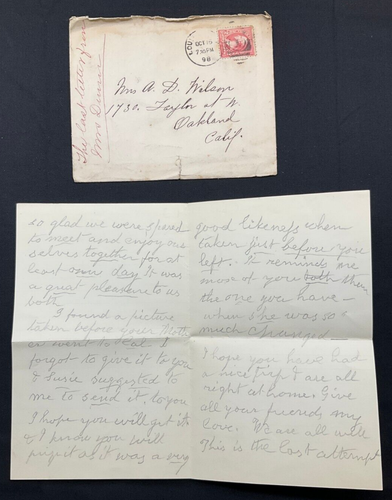 The last letter from
Mrs Dunn
LOU
OCT 19
7 30 PM
98
Mrs A. D. Wilson
1730. Taylor st W.
Oakland
Calif.
so glad we were spared
to meet and enjoy our
selves together for at
least one day It was
a great pleasure to us
both
I found a picture
taken before your Moth
er went to Cal I
forgot to give it to you
& Susie suggested to
me to send it, to you
I hope you will get it
& I know you will
prize it as it was a very
good likeness when
taken just before you
left. It reminds me
more of you both than
the one you have -
when she was so
much changed
I hope you have had
a nice trip & are all
right at home. Give
all your friends my
love. We are all well
This is the last attempt